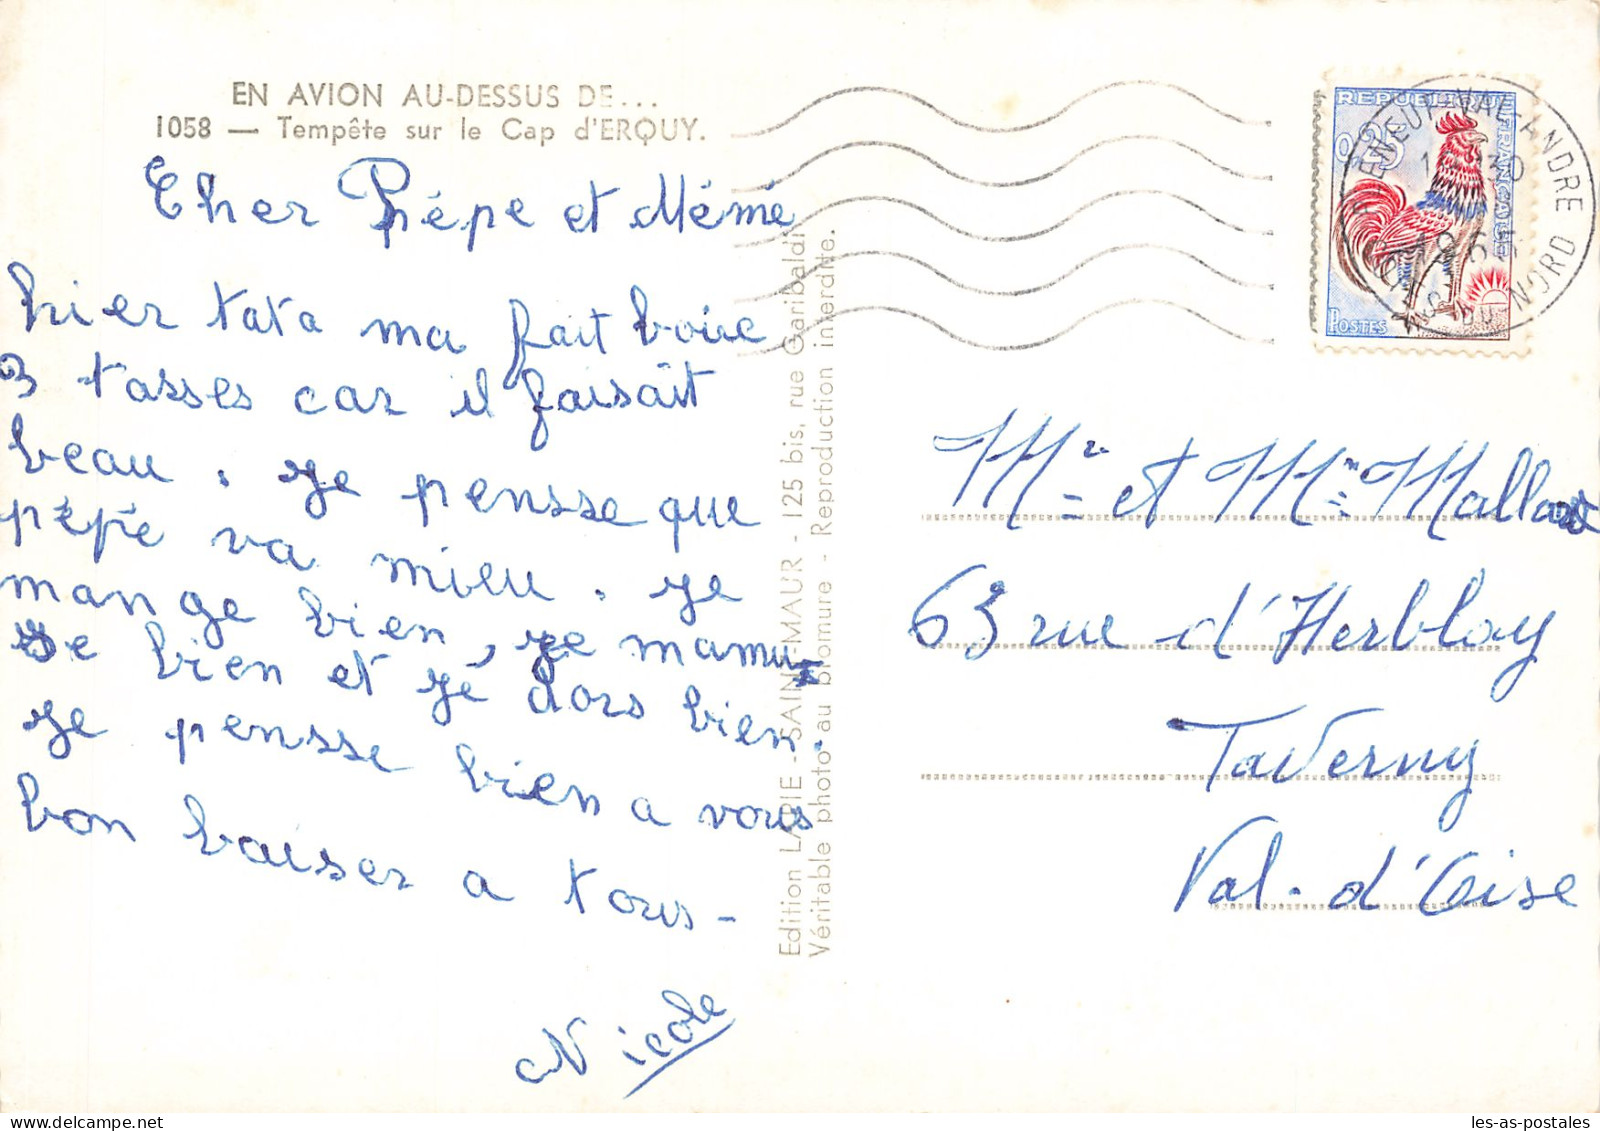 EN AVION AU-DESSUS DE...
1058 — Tempête sur le Cap d'ERQUY.
Cher Pépe et Mémé
hier tata ma fait boire
3 tasses car il faisait
beau. je pensse que
pépé va mieu. je
mange bien, je mamu
se bien et jé dors bien.
je pensse bien a vous
bon baiser a tous -
Nicole
Edition LAPIE - SAINT-MAUR - 125 bis, rue Garibaldi
Véritable photo au bromure - Reproduction interdite.
REPUBLIQUE FRANCAISE
0,25
POSTES
PLENEUF-VAL-ANDRE
1965
COTES DU NORD
Mr et Mme Mallat
63 rue d'Herblay
Taverny
Val-d'Oise
les-as-postales